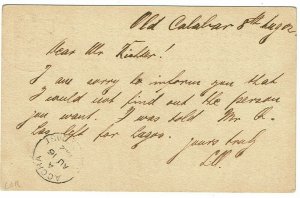 Old Calabar 8th Aug 02
Dear Mr Richter!
I am sorry to inform you that
I could not find out the person
you want. I was told Mr
left for Lagos.
Yours truly
ACCRA
AU 16